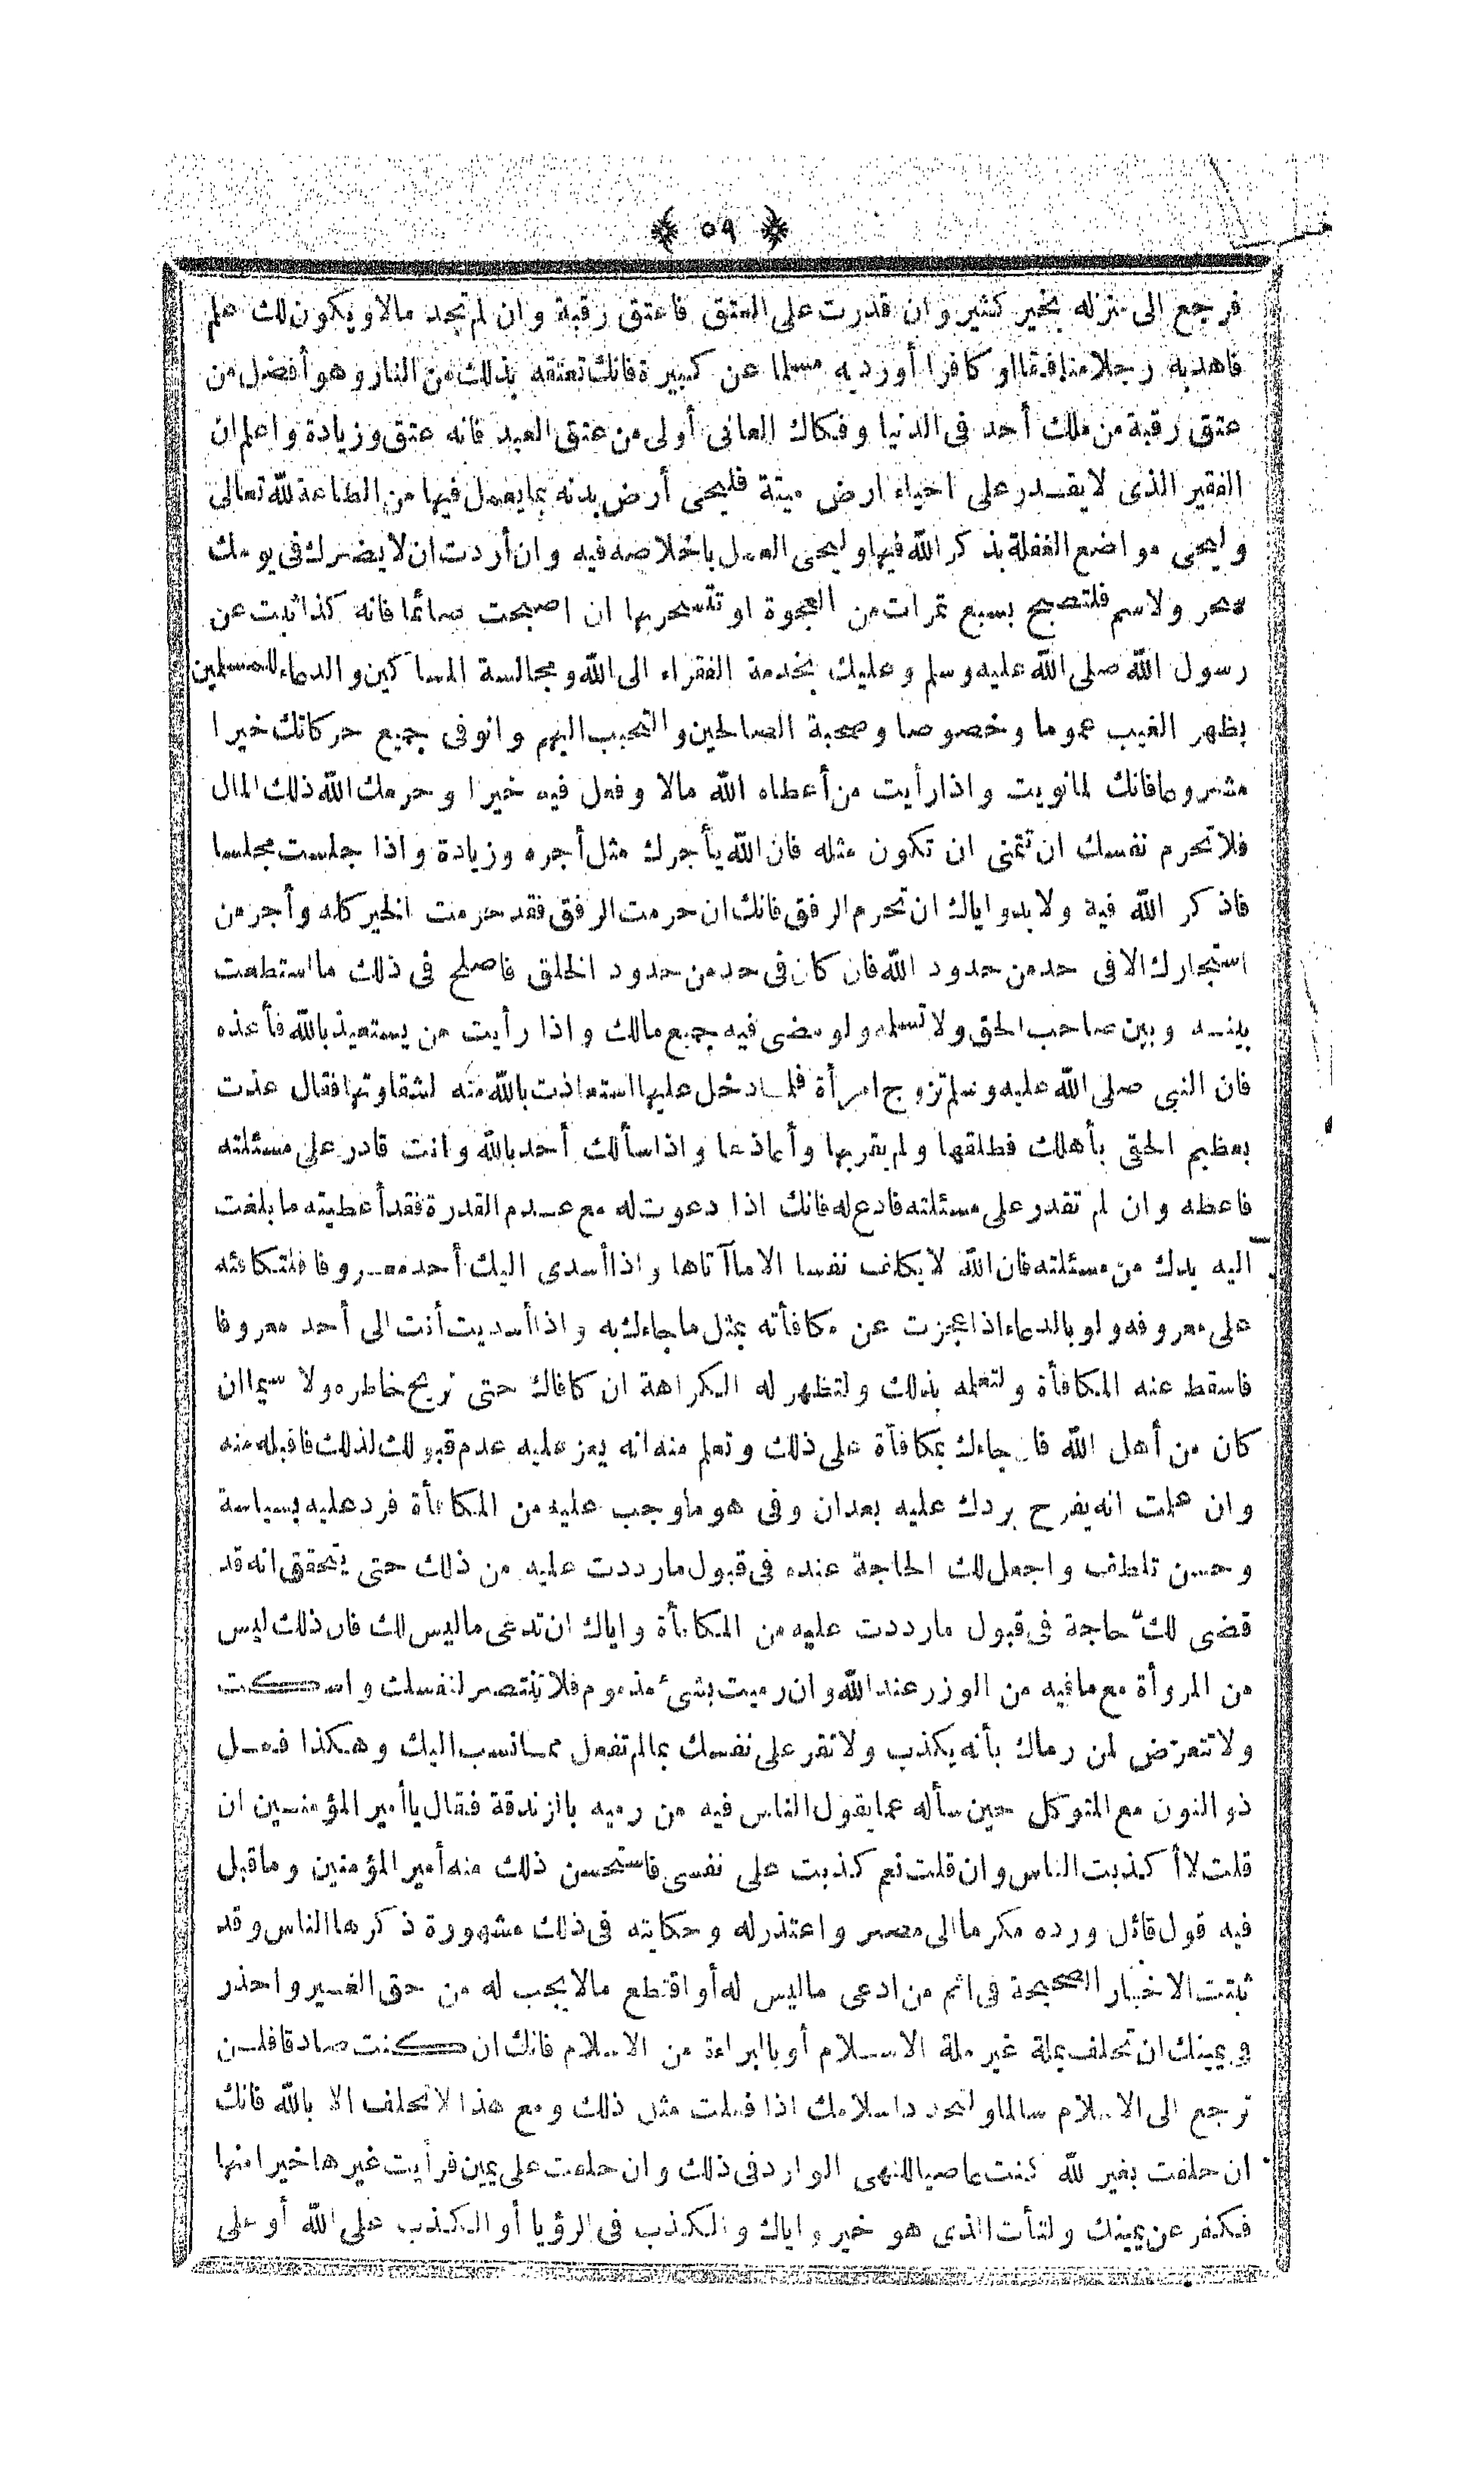 ٥٩
فرجع الى منزله بخير كثير وان قدرت على العتق فاعتق رقبة وان لم تجد مالا ويكون لك علم
فاهد به رجلا منافقا او كافرا أو رد به مسلما عن كبيرة فانك تعتقه بذلك من النار وهو أفضل من
عتق رقبة من ملك أحد فى الدنيا وفكاك العانى أولى من عتق العبد فانه عتق وزيادة واعلم ان
الفقير الذى لا يقدر على احياء ارض ميتة فليحى أرض بدنه بما يعمل فيها من الطاعة لله تعالى
وليحى مواضع الغفلة بذكر الله فيها وليحى العمل باخلاصه فيه وان أردت ان لا يضرك فى يومك
سحر ولا سم فلتصبح بسبع تمرات من العجوة او تتسحر بها ان اصبحت صائما فانه كذا ثبت عن
رسول الله صلى الله عليه وسلم وعليك بخدمة الفقراء الى الله ومجالسة المساكين والدعاء للمسلمين
بظهر الغيب عموما وخصوصا وصحبة الصالحين والتحبب اليهم وانو فى جميع حركاتك خيرا
مشروعا فانك لما نويت واذا رأيت من أعطاه الله مالا وفعل فيه خيرا وحرمك الله ذلك المال
فلا تحرم نفسك ان تتمنى ان تكون مثله فان الله يأجرك مثل أجره وزيادة واذا جلست مجلسا
فاذكر الله فيه ولا بد واياك ان تحرم الرفق فانك ان حرمت الرفق فقد حرمت الخير كله وأجر من
استجارك الا فى حد من حدود الله فان كان فى حد من حدود الخلق فاصلح فى ذلك ما استطعت
بينه وبين صاحب الحق ولا تسلمه ولو مضى فيه جميع مالك واذا رأيت من يستعيذ بالله فأعذه
فان النبى صلى الله عليه وسلم تزوج امرأة فلما دخل عليها استعاذت بالله منه لشقاوتها فقال عذت
بعظيم الحقى بأهلك فطلقها ولم يقربها وأعاذها واذا سألك أحد بالله وانت قادر على مسئلته
فاعطه وان لم تقدر على مسئلته فادع له فانك اذا دعوت له مع عدم القدرة فقد أعطيته ما بلغت
اليه يدك من مسئلته فان الله لا يكلف نفسا الا ما آتاها واذا أسدى اليك أحد معروفا فلتكافئه
على معروفه ولو بالدعاء اذا عجزت عن مكافأته بمثل ما جاءك به واذا أسديت أنت الى أحد معروفا
فاسقط عنه المكافأة ولتعلمه بذلك ولتظهر له الكراهة ان كافاك حتى تريح خاطره ولا سيما ان
كان من أهل الله فان جاءك بمكافأة على ذلك وتعلم منه انه يعز عليه عدم قبولك لذلك فاقبله منه
وان علمت انه يفرح بردك عليه بعد ان وفى هو ما وجب عليه من المكافأة فرد عليه بسياسة
وحسن تلطف واجعل لك الحاجة عنده فى قبول ما رددت عليه من ذلك حتى يتحقق انه قد
قضى لك حاجة فى قبول ما رددت عليه من المكافأة واياك ان تدعى ما ليس لك فان ذلك ليس
من المروأة مع ما فيه من الوزر عند الله وان رميت بشئ مذموم فلا تنتصر لنفسك واسكت
ولا تتعرّض لمن رماك بأنه يكذب ولا تقر على نفسك بما لم تفعل مما نسب اليك وهكذا فعل
ذو النون مع المتوكل حين سأله عما يقول الناس فيه من رميه بالزندقة فقال يا أمير المؤمنين ان
قلت لا أكذبت الناس وان قلت نعم كذبت على نفسى فاستحسن ذلك منه أمير المؤمنين وما قبل
فيه قول قائل ورده مكرما الى مصر واعتذر له وحكايته فى ذلك مشهورة ذكرها الناس وقد
ثبتت الاخبار الصحيحة فى اثم من ادعى ما ليس له أو اقتطع ما لا يجب له من حق الغير واحذر
فى يمينك ان تحلف بملة غير ملة الاسلام أو بالبراءة من الاسلام فانك ان كنت صادقا فلن
ترجع الى الاسلام سالما ولتجدد اسلامك اذا فعلت مثل ذلك ومع هذا لا تحلف الا بالله فانك
ان حلفت بغير لله كنت عاصيا للنهى الوارد فى ذلك وان حلفت على يمين فرأيت غيرها خيرا منها
فكفر عن يمينك ولتأت الذى هو خير واياك والكذب فى الرؤيا أو الكذب على الله أو على